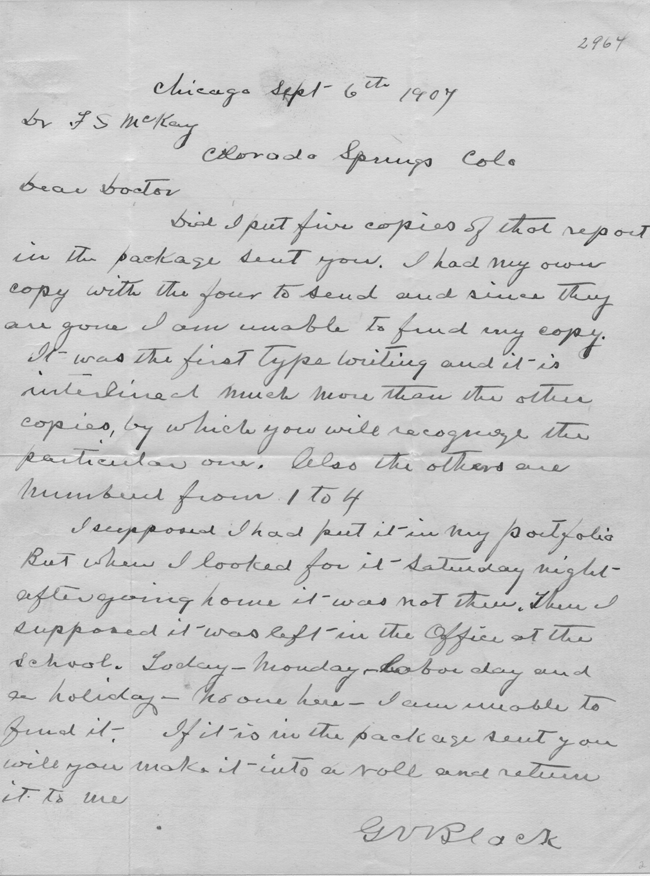 2967
Chicago Sept 6th 1907
Dr F S McKay
Colorado Springs Colo
Dear Doctor
Did I put five copies of that report
in the package sent you. I had my own
copy with the four to send and since they
are gone I am unable to find my copy.
It was the first type writing and it is
interlined much more than the other
copies, by which you will recognize the
particular one. Also the others are
numbered from 1 to 4
I supposed I had put it in my portfolio
But when I looked for it Saturday night
after going home it was not there. Then I
supposed it was left in the Office at the
school. Today - Monday - Labor day and
a holiday - no one here - I am unable to
find it. If it is in the package sent you
will you make it into a roll and return
it to me
G V Black